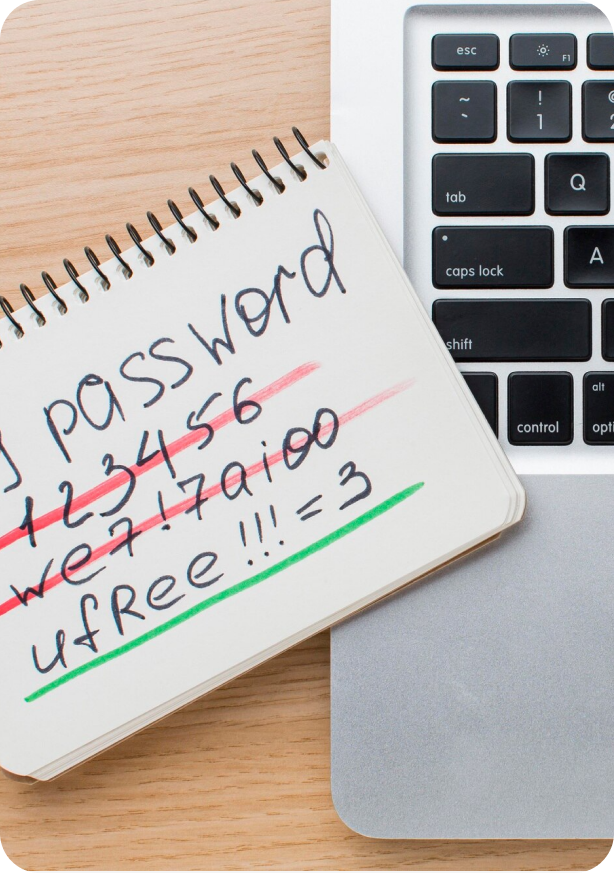 password
123456
we7!7aioo
ufRee!!!=3
esc
F1
~
`
!
1
tab
Q
caps lock
A
shift
control
alt